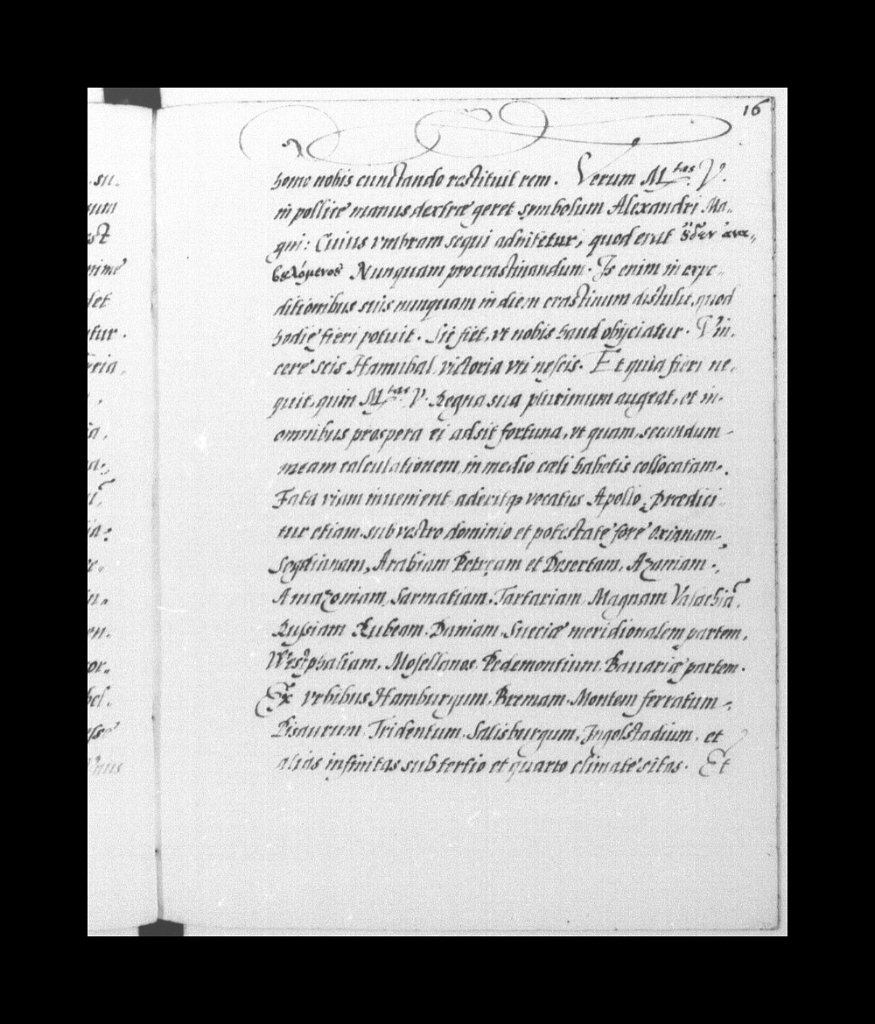 16
homo nobis cunctando restituit rem. Verum M.tas V.
in pollice manus dextræ geret symbolum Alexandri Ma-
gni: Cuius vmbram sequi adnitetur, quod erat
Nunquam procrastinandum. Is enim in expe-
ditionibus suis nunquam in diem crastinum distulit, quod
hodie fieri potuit. Sic fiet, vt nobis haud obijciatur. Vin-
cere scis Hannibal, victoria vti nescis. Et quia fieri ne-
quit, quin M.tas V. Regna sua plurimum augeat, et in-
omnibus prospera ei adsit fortuna, vt quam, secundum
meam calculationem, in medio cæli habetis collocatam.
Fata viam invenient, aderitq3 vocatus Apollo, Prædici-
tur etiam, sub vestro dominio et potestate fore Oxianam,
Sogdianam, Arabiam Petream et Desertam, Azaniam,
Amazoniam, Sarmatiam, Tartariam, Magnam Valachiã,
Russiam Rubeam, Daniam, Sueciæ meridionalem partem,
Westphaliam, Mosellanos, Pedemontium, Bauariæ partem.
Ex vrbibus Hamburgum, Bremam, Montem ferratum,
Pisaurum, Tridentum, Salisburgum, Ingolstadium, et
alias infinitas sub tertio et quarto climate sitas. Et